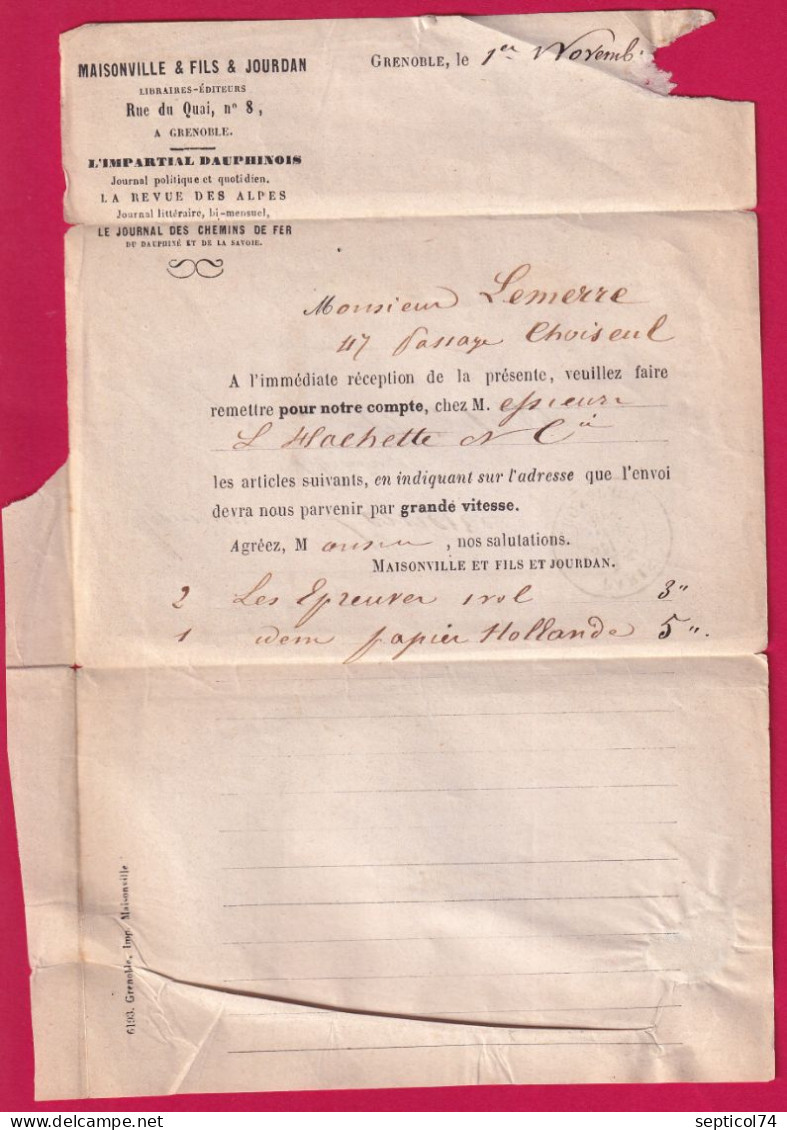 MAISONVILLE & FILS & JOURDAN
LIBRAIRES-ÉDITEURS
Rue du Quai, nº 8,
A GRENOBLE.
L'IMPARTIAL DAUPHINOIS
Journal politique et quotidien.
LA REVUE DES ALPES
Journal littéraire, bi-mensuel,
LE JOURNAL DES CHEMINS DE FER
DU DAUPHINÉ ET DE LA SAVOIE.
GRENOBLE, le 1er Novemb
Monsieur Lemerre
47 Passage Choiseul
A l'immédiate réception de la présente, veuillez faire
remettre pour notre compte, chez M. essieurs
L Hachette & Cie
les articles suivants, en indiquant sur l'adresse que l'envoi
devra nous parvenir par grande vitesse.
Agréez, M onsieur, nos salutations.
MAISONVILLE ET FILS ET JOURDAN.
2 Les Epreuves 1 vol 3 "
1 idem papier Hollande 5 ".
6193, Grenoble, Imp. Maisonville
septicol74